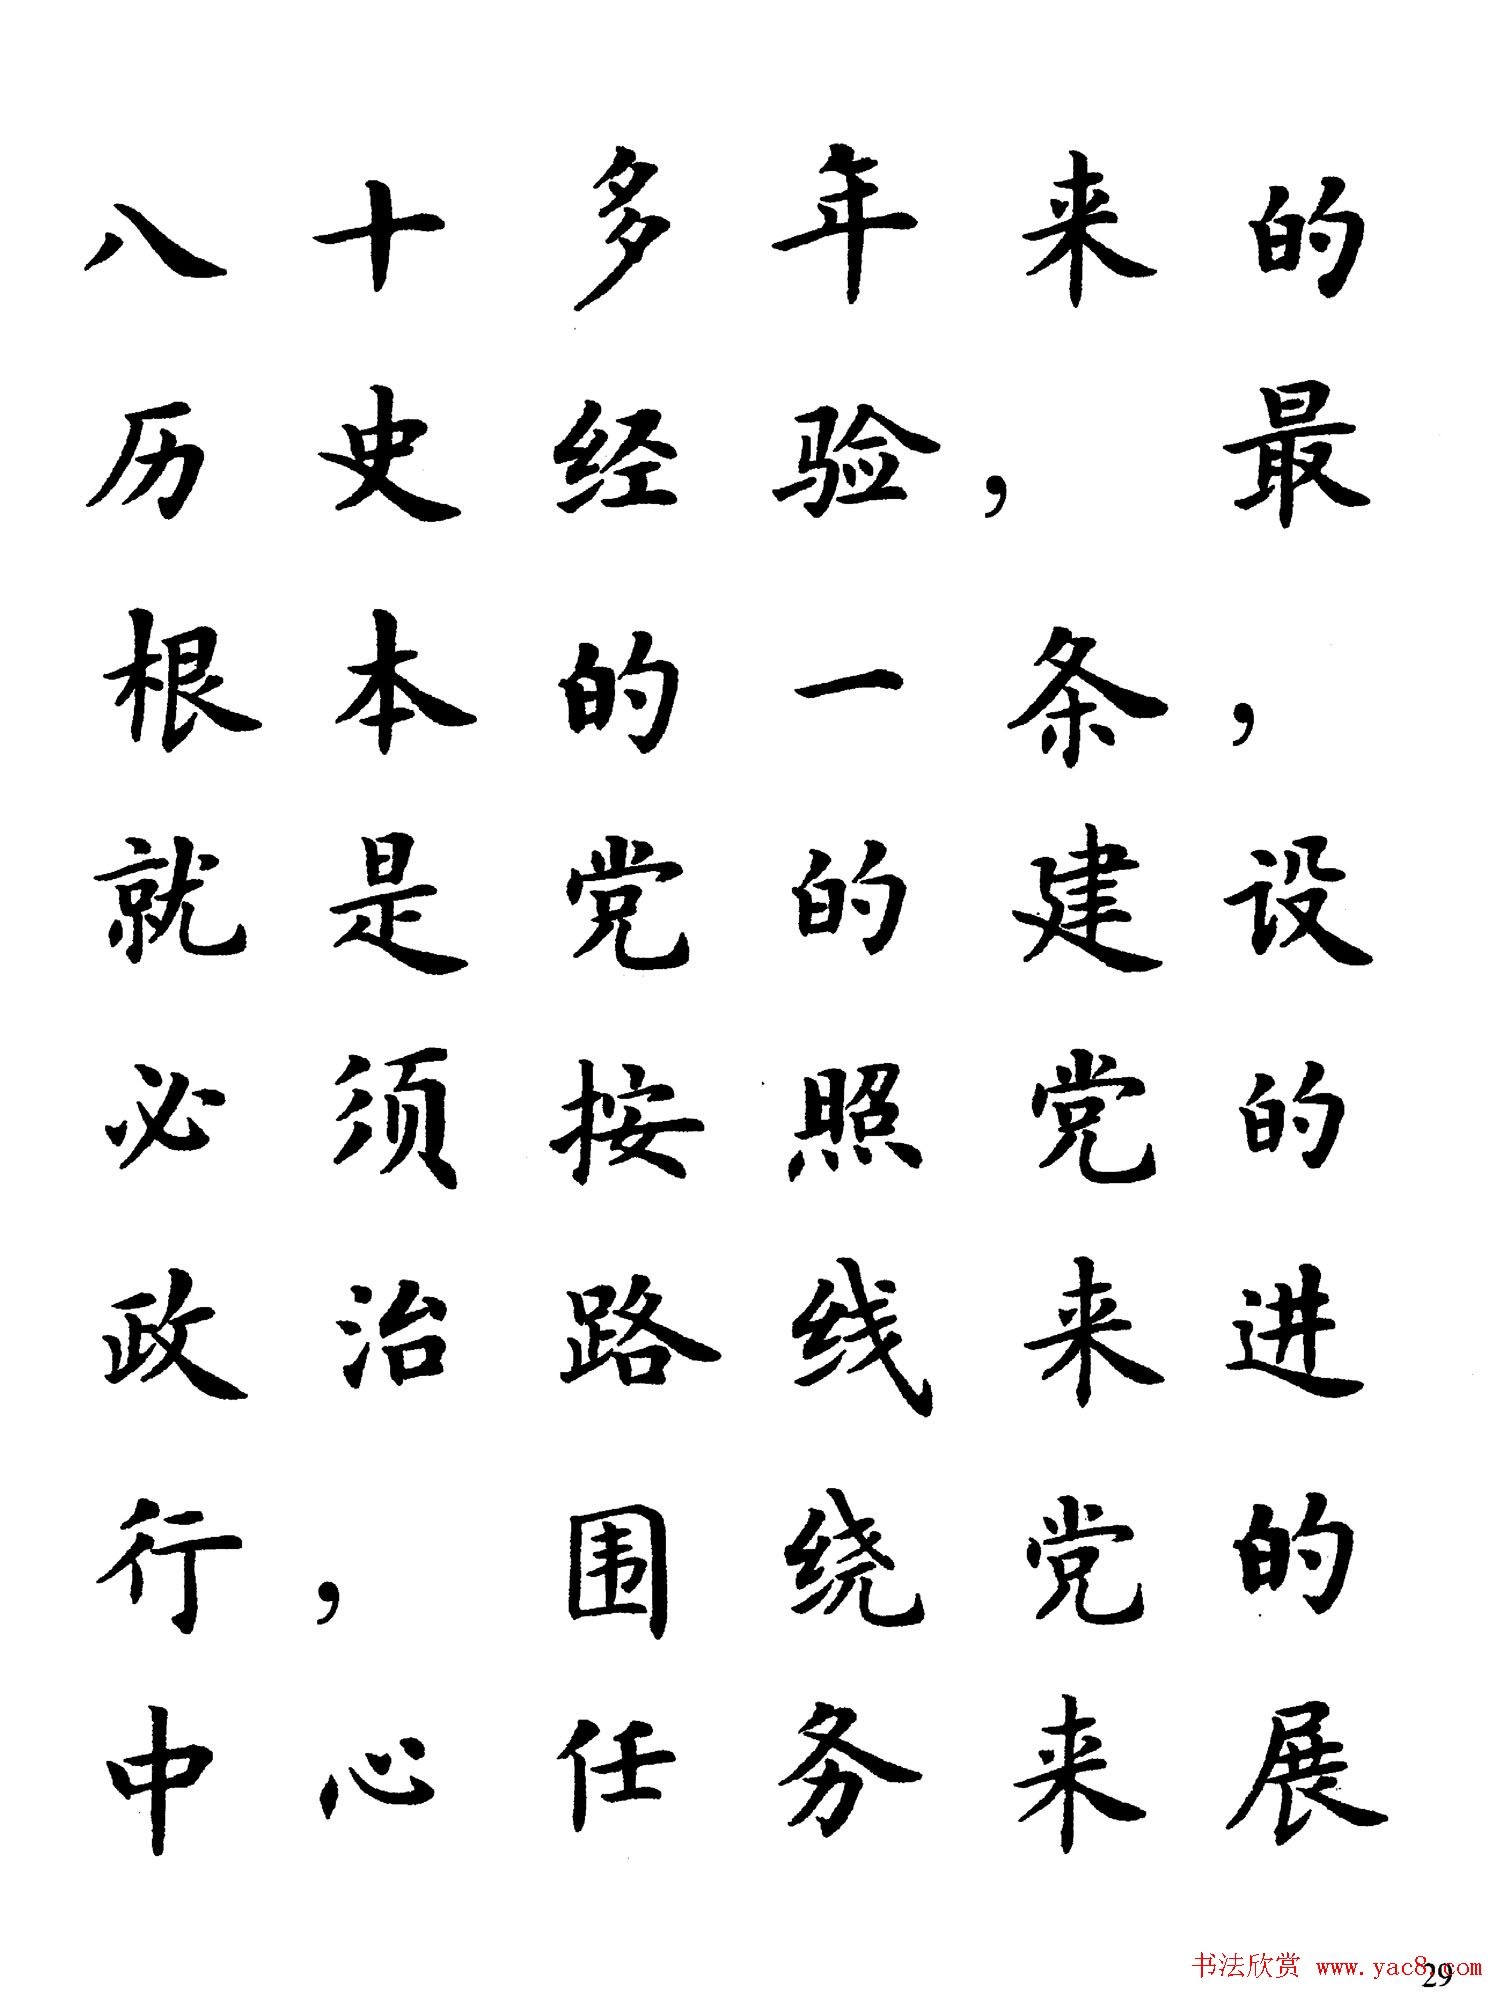 八十多年来的
历史经验，最
根本的一条，
就是党的建设
必须按照党的
政治路线来进
行，围绕党的
中心任务来展
书法欣赏 www.yac8.com
29